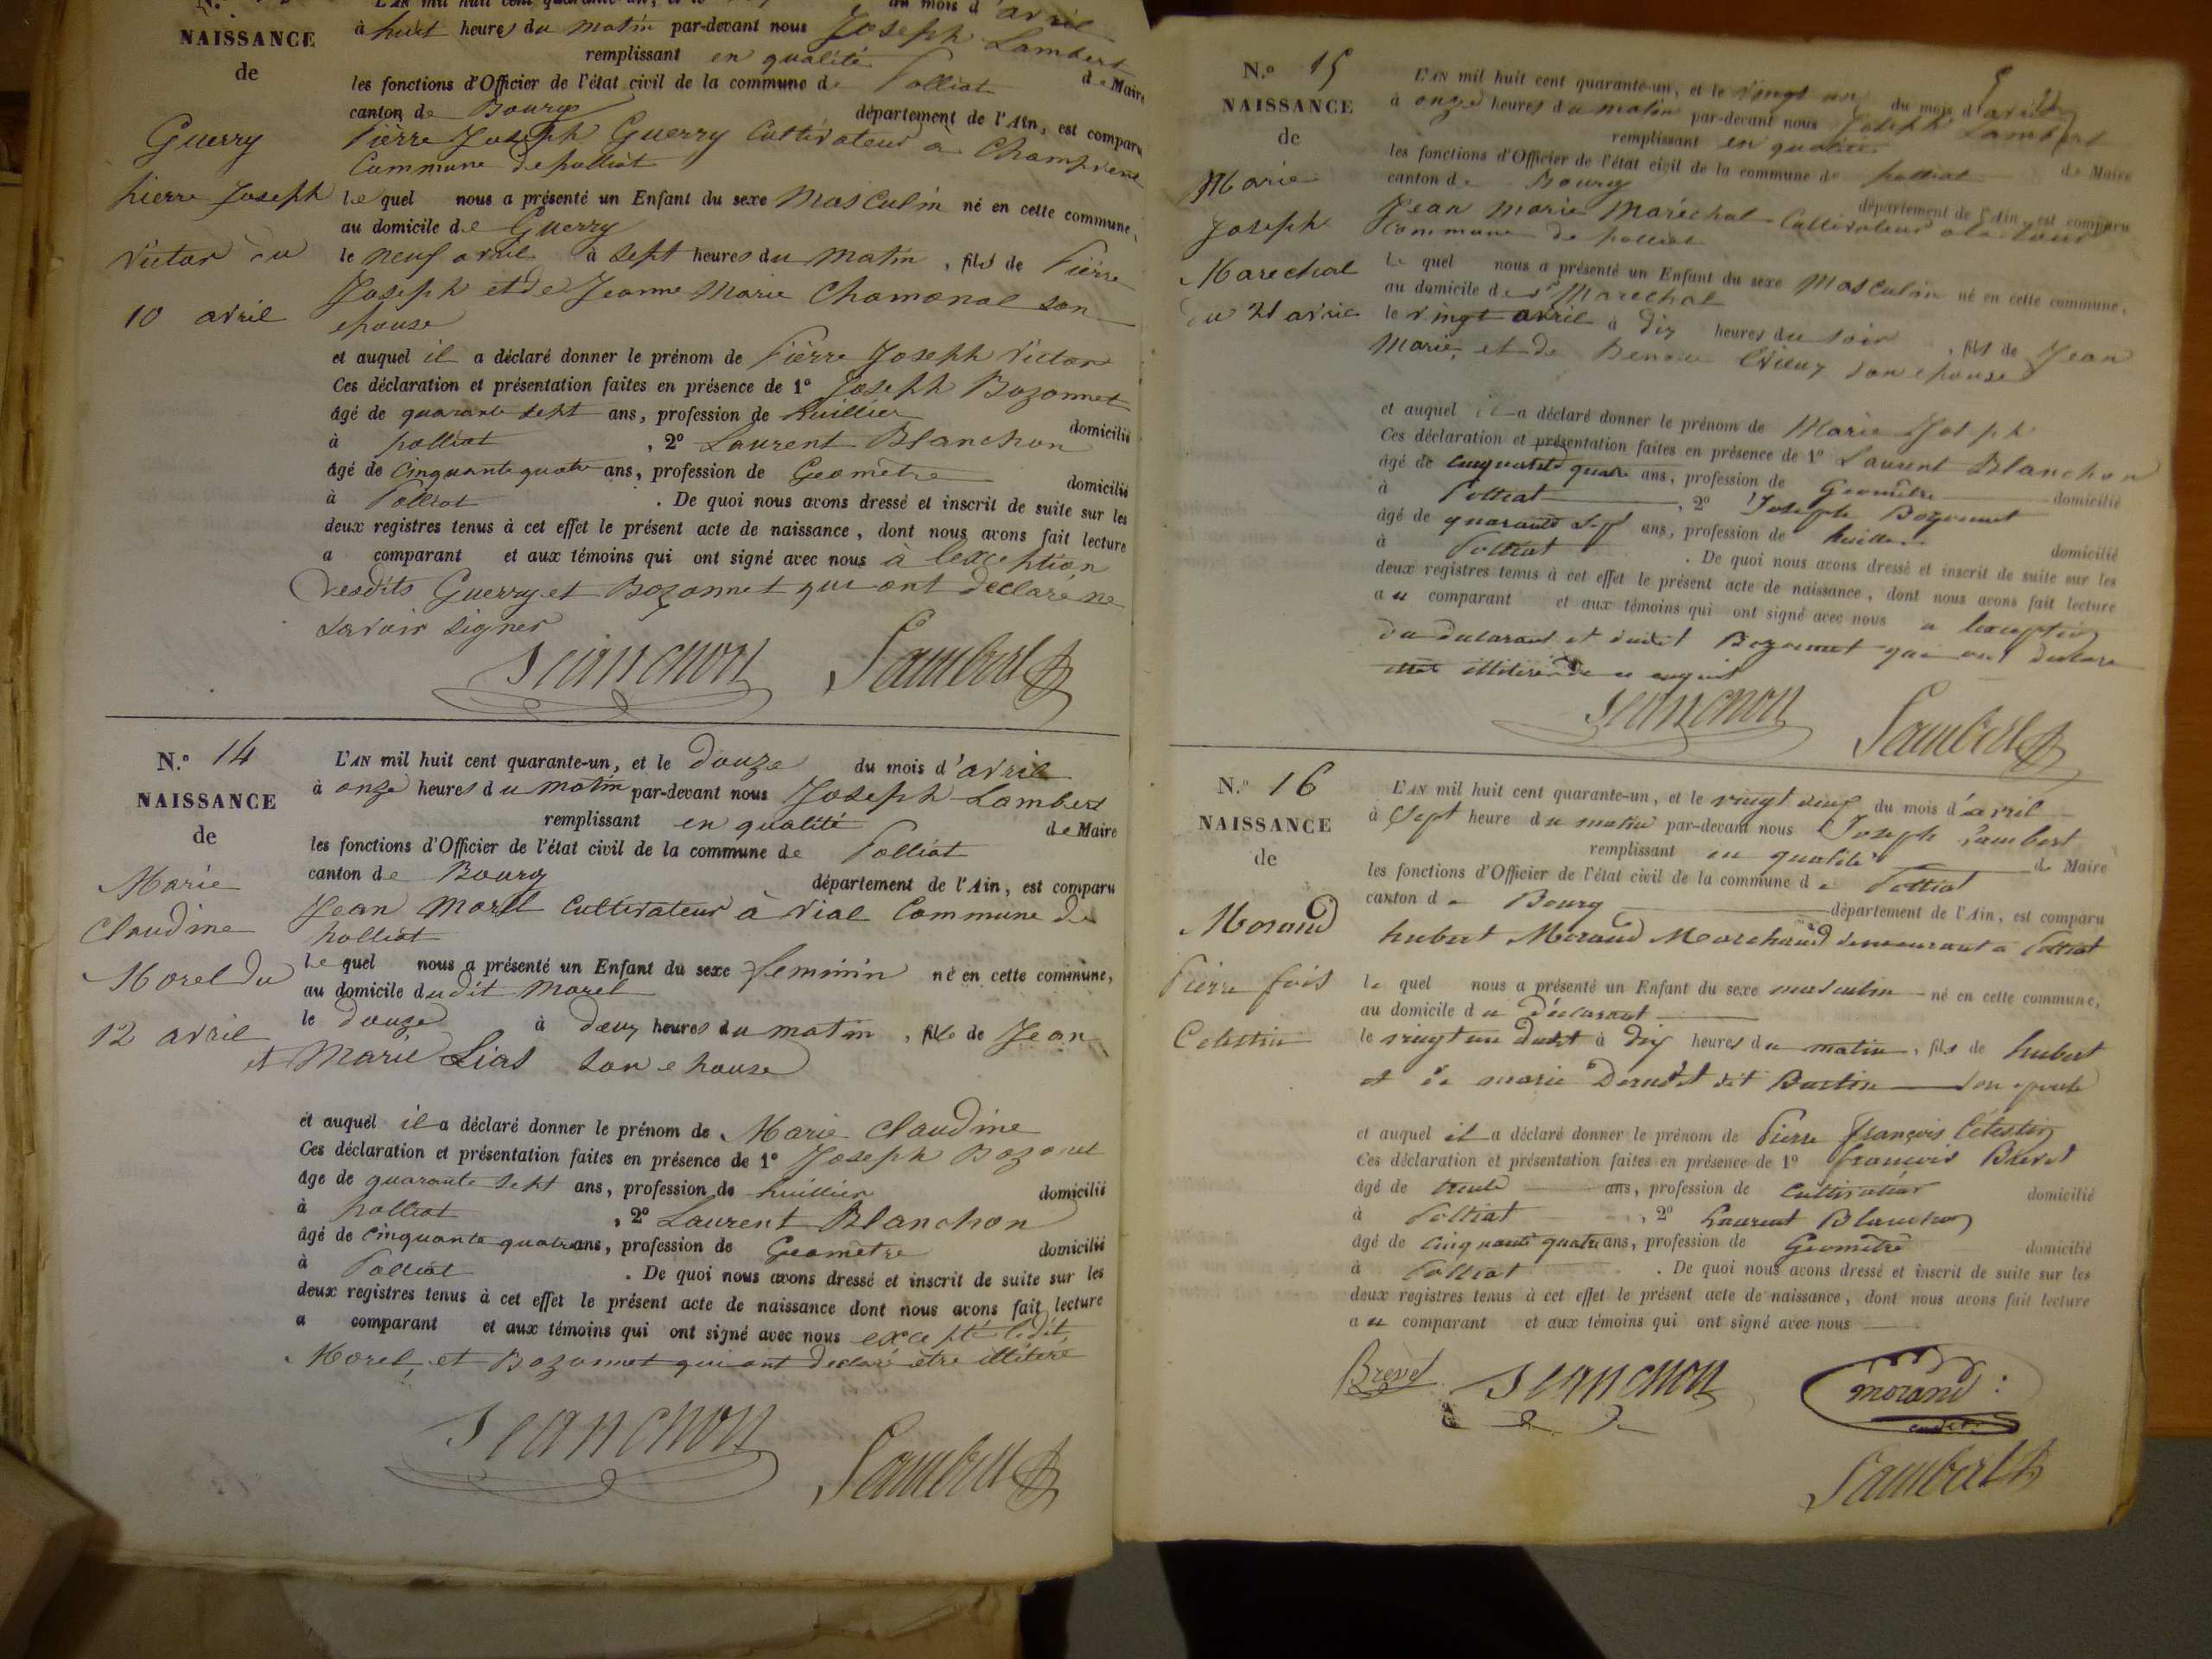 N.°
NAISSANCE
de
Guerry
pierre Joseph
Victor du
10 avril
L'AN mil huit cent quarante-un, et le du mois d'avril
à huit heures du matin par-devant nous Joseph Lambert
remplissant en qualité de Maire
les fonctions d'Officier de l'état civil de la commune de Polliat
canton de Bourg département de l'Ain, est comparu
Pierre Joseph Guerry Cultivateur à
Commune de polliat
le quel nous a présenté un Enfant du sexe Masculin né en cette commune,
au domicile de Guerry
le neuf avril à sept heures du matin, fils de Pierre
Joseph et de Jeanne Marie Chamonal son
epouse
et auquel il a déclaré donner le prénom de Pierre Joseph Victor
Ces déclaration et présentation faites en présence de 1° Joseph Bozonnet
âgé de quarante sept ans, profession de huillier domicilié
à polliat, 2° Laurent Blanchon
âgé de Cinquante quatre ans, profession de Geomètre domicilié
à Polliat. De quoi nous avons dressé et inscrit de suite sur les
deux registres tenus à cet effet le présent acte de naissance, dont nous avons fait lecture
a comparant et aux témoins qui ont signé avec nous à lexception
desdits Guerry et Bozonnet qui ont declaré ne
savoir signer
Blanchon Lambert
N.° 14
NAISSANCE
de
Marie
Claudine
Morel du
12 avril
L'AN mil huit cent quarante-un, et le douze du mois d'avril
à onze heures du matin par-devant nous Joseph Lambert
remplissant en qualité de Maire
les fonctions d'Officier de l'état civil de la commune de Polliat
canton de Bourg département de l'Ain, est comparu
Jean Morel Cultivateur à vial Commune de
polliat
le quel nous a présenté un Enfant du sexe feminin né en cette commune,
au domicile dudit Morel
le douze à deux heures du matin, fille de Jean
et Marie Lias son epouse
et auquel il a déclaré donner le prénom de Marie Claudine
Ces déclaration et présentation faites en présence de 1° Joseph Bozonet
âge de quarante sept ans, profession de huillier domicilié
à polliat, 2° Laurent Blanchon
âgé de Cinquante quatre ans, profession de Geomètre domicilié
à Polliat. De quoi nous avons dressé et inscrit de suite sur les
deux registres tenus à cet effet le présent acte de naissance dont nous avons fait lecture
a comparant et aux témoins qui ont signé avec nous excepté ledit
Morel, et Bozonnet qui ont declaré être illiteré
Blanchon Lambert
5
N.° 15
NAISSANCE
de
Marie
Joseph
Marechal
du 21 avril
L'AN mil huit cent quarante-un, et le vingt un du mois d'avril
à onze heures du matin par-devant nous Joseph Lambert
remplissant en qualité de Maire
les fonctions d'Officier de l'état civil de la commune de polliat
canton de Bourg département de l'Ain, est comparu
Jean Marie Maréchal Cultivateur a la
Commune de polliat
le quel nous a présenté un Enfant du sexe Masculin né en cette commune,
au domicile de Marechal
le vingt avril à dix heures du soir, fils de Jean
Marie, et de son epouse
et auquel il a déclaré donner le prénom de Marie Joseph
Ces déclaration et présentation faites en présence de 1° Laurent Blanchon
âgé de cinquante quatre ans, profession de Geomètre domicilié
à Polliat, 2° Joseph Bozonnet
âgé de quarante sept ans, profession de huillier domicilié
à Polliat. De quoi nous avons dressé et inscrit de suite sur les
deux registres tenus à cet effet le présent acte de naissance, dont nous avons fait lecture
au comparant et aux témoins qui ont signé avec nous a lexception
du declarant et dudit Bozonnet qui ont declare
illiteré de ce enquis
Blanchon Lambert
N.° 16
NAISSANCE
de
Morand
Pierre fois
Celestin
L'AN mil huit cent quarante-un, et le vingt deux du mois d'avril
à Sept heure du matin par-devant nous Joseph Lambert
remplissant en qualité de Maire
les fonctions d'Officier de l'état civil de la commune de Polliat
canton de Bourg département de l'Ain, est comparu
hubert Morand Marchand demeurant a Polliat
le quel nous a présenté un Enfant du sexe masculin né en cette commune,
au domicile du déclarant
le vingt un dudit à dix heures du matin, fils de hubert
et de marie dit son epouse
et auquel il a déclaré donner le prénom de Pierre François Célestin
Ces déclaration et présentation faites en présence de 1° francois Brevet
âgé de trente ans, profession de cultivateur domicilié
à Polliat, 2° Laurent Blanchon
âgé de cinquante quatre ans, profession de Géomètre domicilié
à Polliat. De quoi nous avons dressé et inscrit de suite sur les
deux registres tenus à cet effet le présent acte de naissance, dont nous avons fait lecture
au comparant et aux témoins qui ont signé avec nous
Brevet Blanchon morand
Lambert